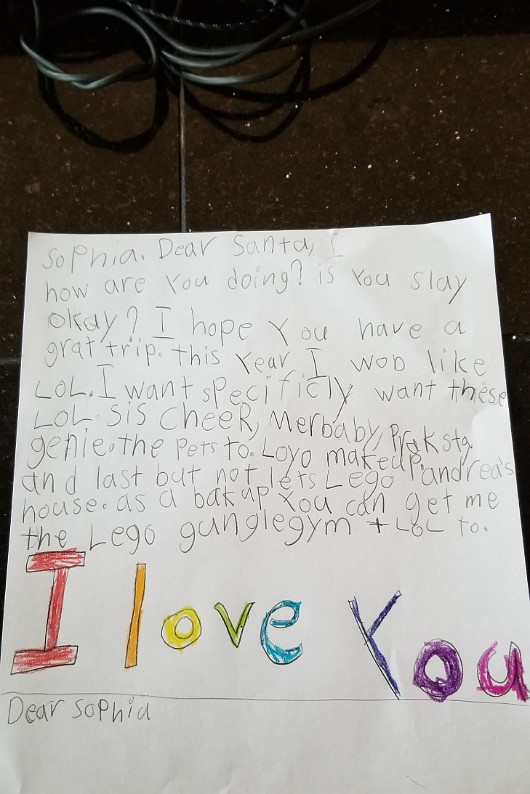 Sophia. Dear Santa, I
how are You doing? is You slay
okay? I hope You have a
grat trip. this Year I wob like
LOL. I want specificly want these
LOL. Sis Cheer, Merbaby, Prak sta
genie. the Pets to. Loyo makeup,
and last but not lets Lego andrea's
house. as a bak up You can get me
the Lego gunglegym + LOL to.
I love You
Dear Sophia